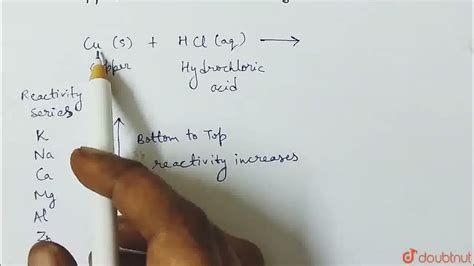 Cu (s) + HCl (aq) ⟶
Hydrochloric
acid
Reactivity
series
K
Na
Ca
Mg
Al
Bottom to Top
reactivity increases
doubtnut